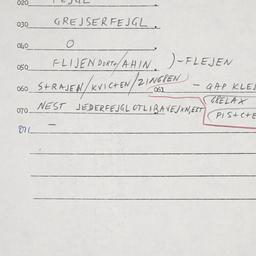 020
030 GREJSERFEJGL.
040 O
050 FLIJEN DORTH/AHIN. )-FLEJEN
060 STRAJEN/KVICTEN/ZINGPEN - GAP KLEJ
061
070 NEST JEDERFEJGLOTLIBAVEJXM,EET GRELAX
PISTCTE
071 -